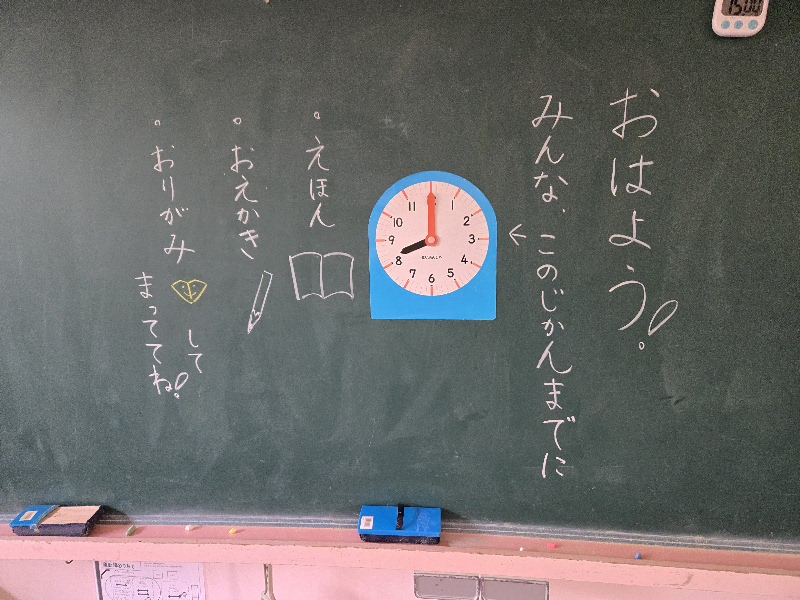 おはよう!
みんな、このじかんまでに
←
12 1 2 3 4 5 6 7 8 9 10 11
。えほん
。おえかき
。おりがみ
して
まっててね!
1500